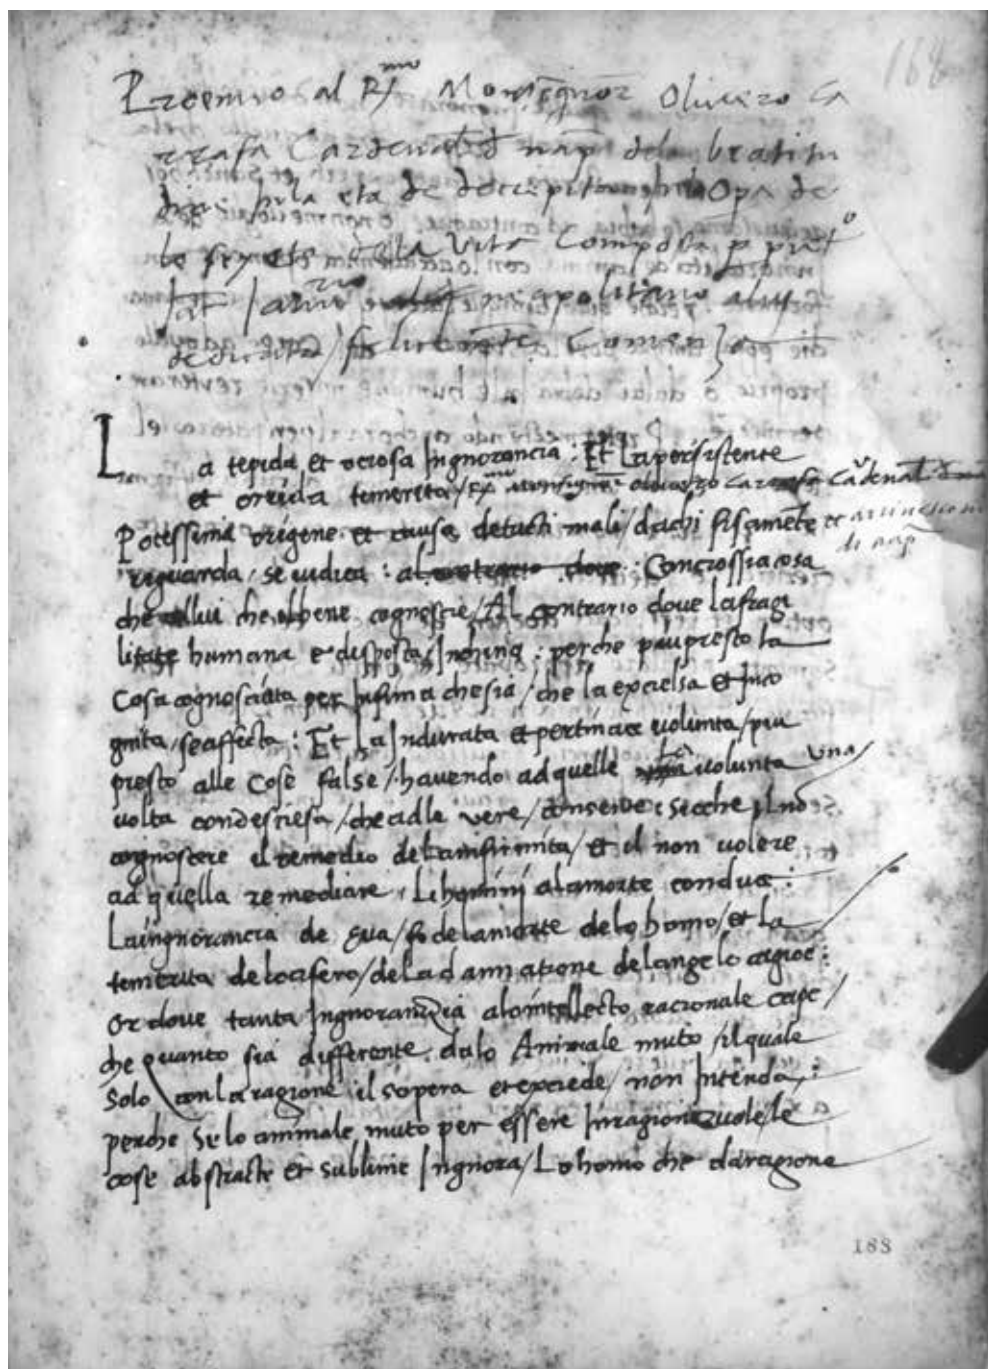 168
Proemio al R.mo Monsegnor Olivero Ca
rrafa Cardenal d nap dela beatitu
eta de Opa de
lo sexto della Vita Composta p
neapolitano
dedicata / felicemte Comenza
La tepida et ociosa Ingnorancia : Et La persistente
et temerita / R.mo Monsignor Olivero Carrafa Cardenal d
Potessima origene et causa detucti mali / dachi fisamete
di nap
riguarda / se iudica : al contrario dove : Concrossia cosa
che collui che elbene cognosce / Al contrario dove la fragi
litate humana e disposta / Inchina : perche piu presto la
Cosa cognosciuta per Infima che sia / che la excielsa et Inco
gnita / se affecta : Et La Indurata et pertinace volunta / piu
presto alle Cose false / havendo ad quelle La volunta una
volta condesciesa / che adle vere / consente : secche il no
cognoscere il remedio dela infirmita / et il non volere
ad quella remediare / Li homini ala morte conduce :
La ingnorancia de Eva / fo dela morte delo homo / et la
temerita de locifero / dela dannatione del angelo cagioe :
Or dove tanta Ingnorancia alo intellecto racionale cape /
che quanto sia differente dalo Animale muto / il quale
Solo con la ragione il sopera et exciede / non Intenda :
perche Se lo animale muto per essere Irragionevole / le
cose abstracte et sublime Ingnora / Lo homo che da ragione
188